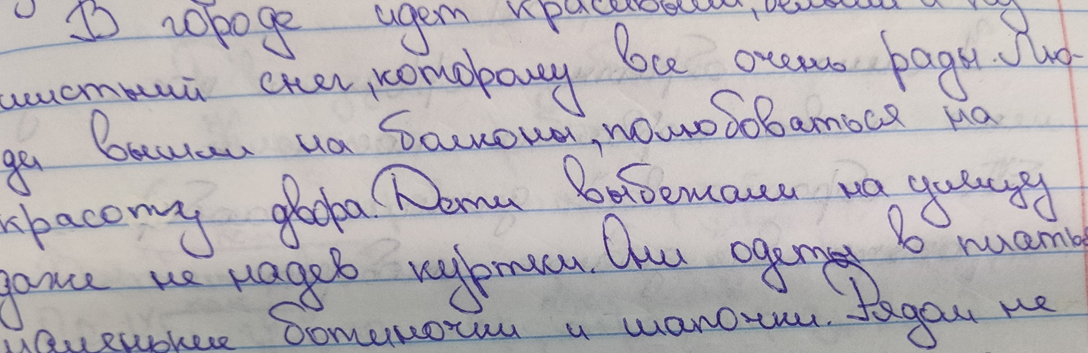 В городе идет красивый, белый и пу
шистый снег, которому все очень рады. Лю-
ди вышли на балконы, полюбоваться на
красоту двора. Дети выбежали на улицу
даже не надев куртки. Они одеты в платье
маленькие ботиночки и шапочки. Рядом не